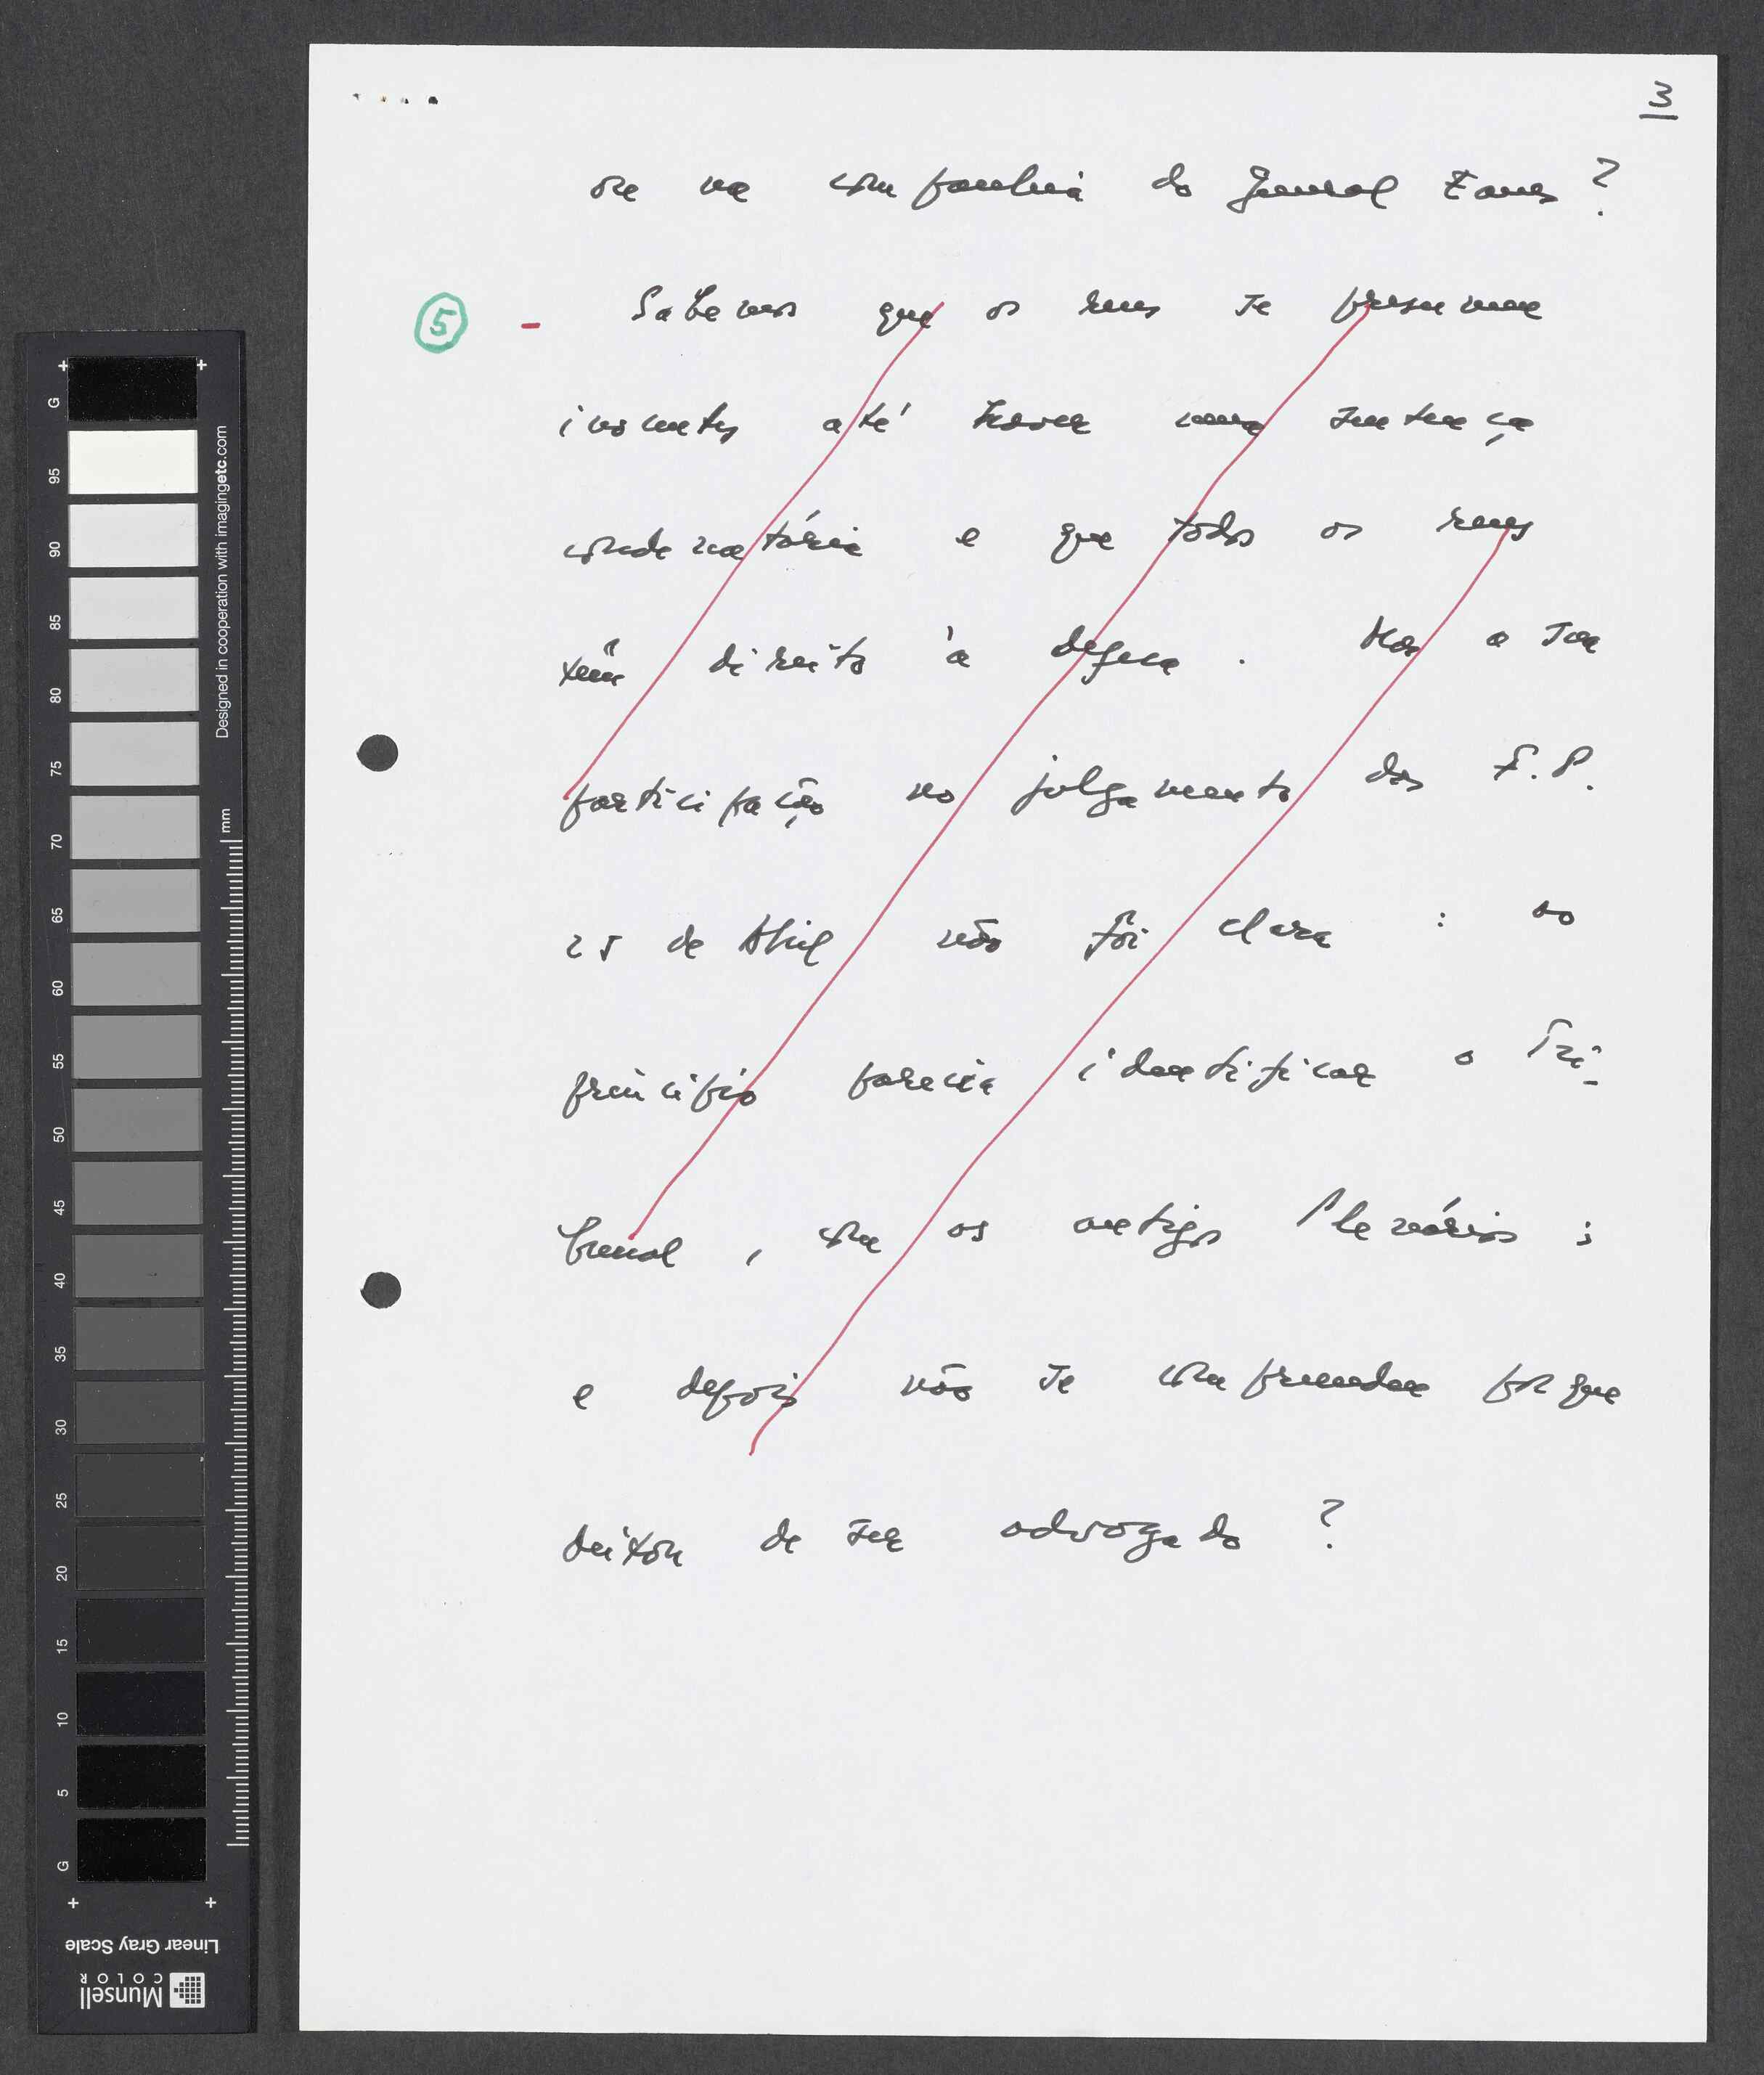 3
ou na companhia do General Eanes ?
⑤ - Sabemos que os reus se presumem
inocentes até haver uma sentença
condenatória e que todos os reus
têm direito à defesa . Mas a sua
participação no julgamento das F.P.
25 de Abril não foi clara : ao
princípio parecia identificar o Tri-
bunal , com os antigos Plenários ;
e depois não se compreendeu porque
deixou de ser advogado ?
G
95
90
85
80
75
70
65
60
55
50
45
40
35
30
25
20
15
10
5
G
mm
Designed in cooperation with imagingetc.com
Linear Gray Scale
Munsell
COLOR